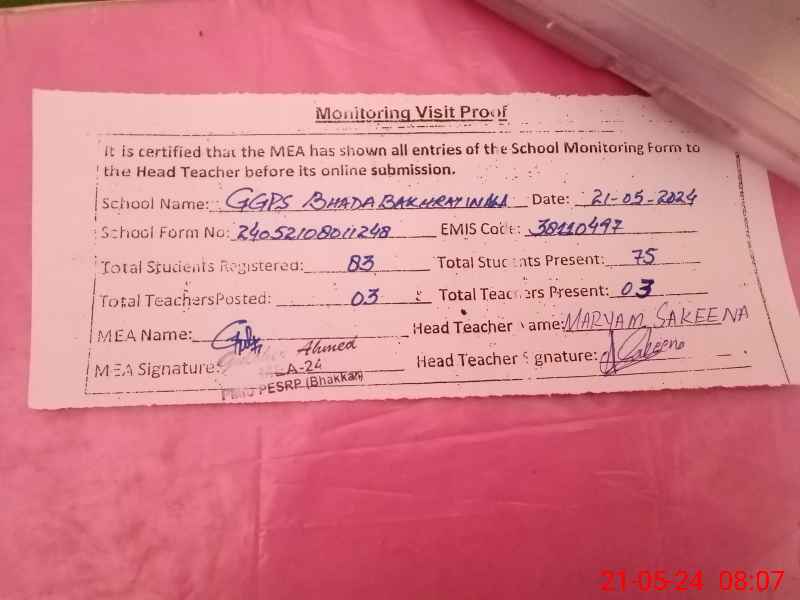 Monitoring Visit Proof
It is certified that the MEA has shown all entries of the School Monitoring Form to
the Head Teacher before its online submission.
School Name: GGPS BHADA Date: 21-05-2024
School Form No: 24052108011248 EMIS Code: 38110497
Total Students Registered: 83 Total Students Present: 75
Total Teachers Posted: 03 Total Teachers Present: 03
MEA Name: Head Teacher Name: MARYAM SAKEENA
MEA Signature: Ahmed Head Teacher Signature: Sakeena
MEA-24
PMIU PESRP (Bhakkar)
21-05-24 08:07